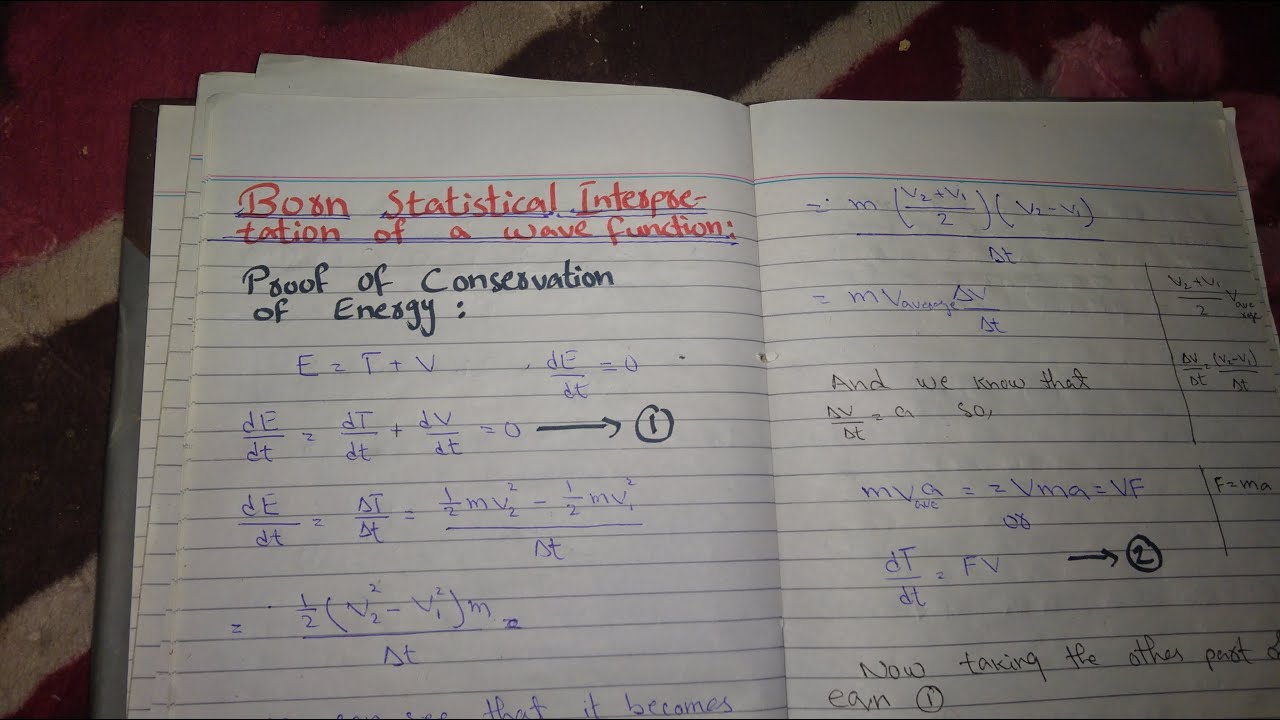 Born Statistical Interpre-
tation of a wave function:
Proof of Conservation
of Energy:
E = T + V , dE/dt = 0
dE/dt = dT/dt + dV/dt = 0 ⟶ ①
dE/dt = ΔT/Δt = (½mV₂² − ½mV₁²)/Δt
= ½(V₂² − V₁²)m / Δt =
see that it becomes
= m((V₂+V₁)/2)(V₂−V₁) / Δt
= m Vaverage ΔV/Δt
(V₂+V₁)/2 Vave rage
ΔV/Δt = (V₂−V₁)/Δt
And we know that
ΔV/Δt = a so,
mVave a = = Vma = VF
F = ma
or
dT/dt = FV ⟶ ②
Now taking the other part of
eqn ①